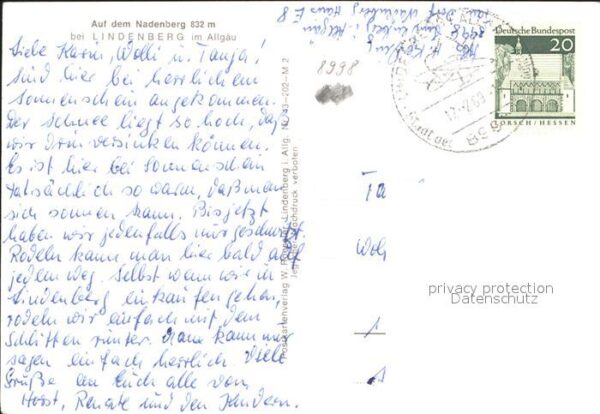 Auf dem Nadenberg 832 m
bei LINDENBERG im Allgäu
Liebe Karin, Wolli u. Tanja!
sind hier bei herrlichem
sonnenschein angekommen.
Der schnee liegt so hoch, daß
wir drin versinken können.
Es ist hier bei sonnenschein
tatsächlich so warm, daß man
sich sonnen kann. Bis jetzt
haben wir jedenfalls nur geschwitzt.
Rodeln kann man hier bald auf
jedem Weg. Selbst wenn wir in
Lindenberg einkaufen gehen,
rodeln wir einfach mit dem
Schlitten runter. Kann nur
sagen einfach herrlich. Viele
Grüße an Euch alle von
Horst, Renate und den Kindern.
Postkartenverlag W. Lindenberg i. Allg. Nr. 43-202-M 2
Nachdruck verboten
8998
Deutsche Bundespost
20
LORSCH / HESSEN
8998 Lindenberg i. Allgäu
Nadenberg Haus E 8
-2.69
Stadt der
899
Ta
Woh
1
privacy protection
Datenschutz